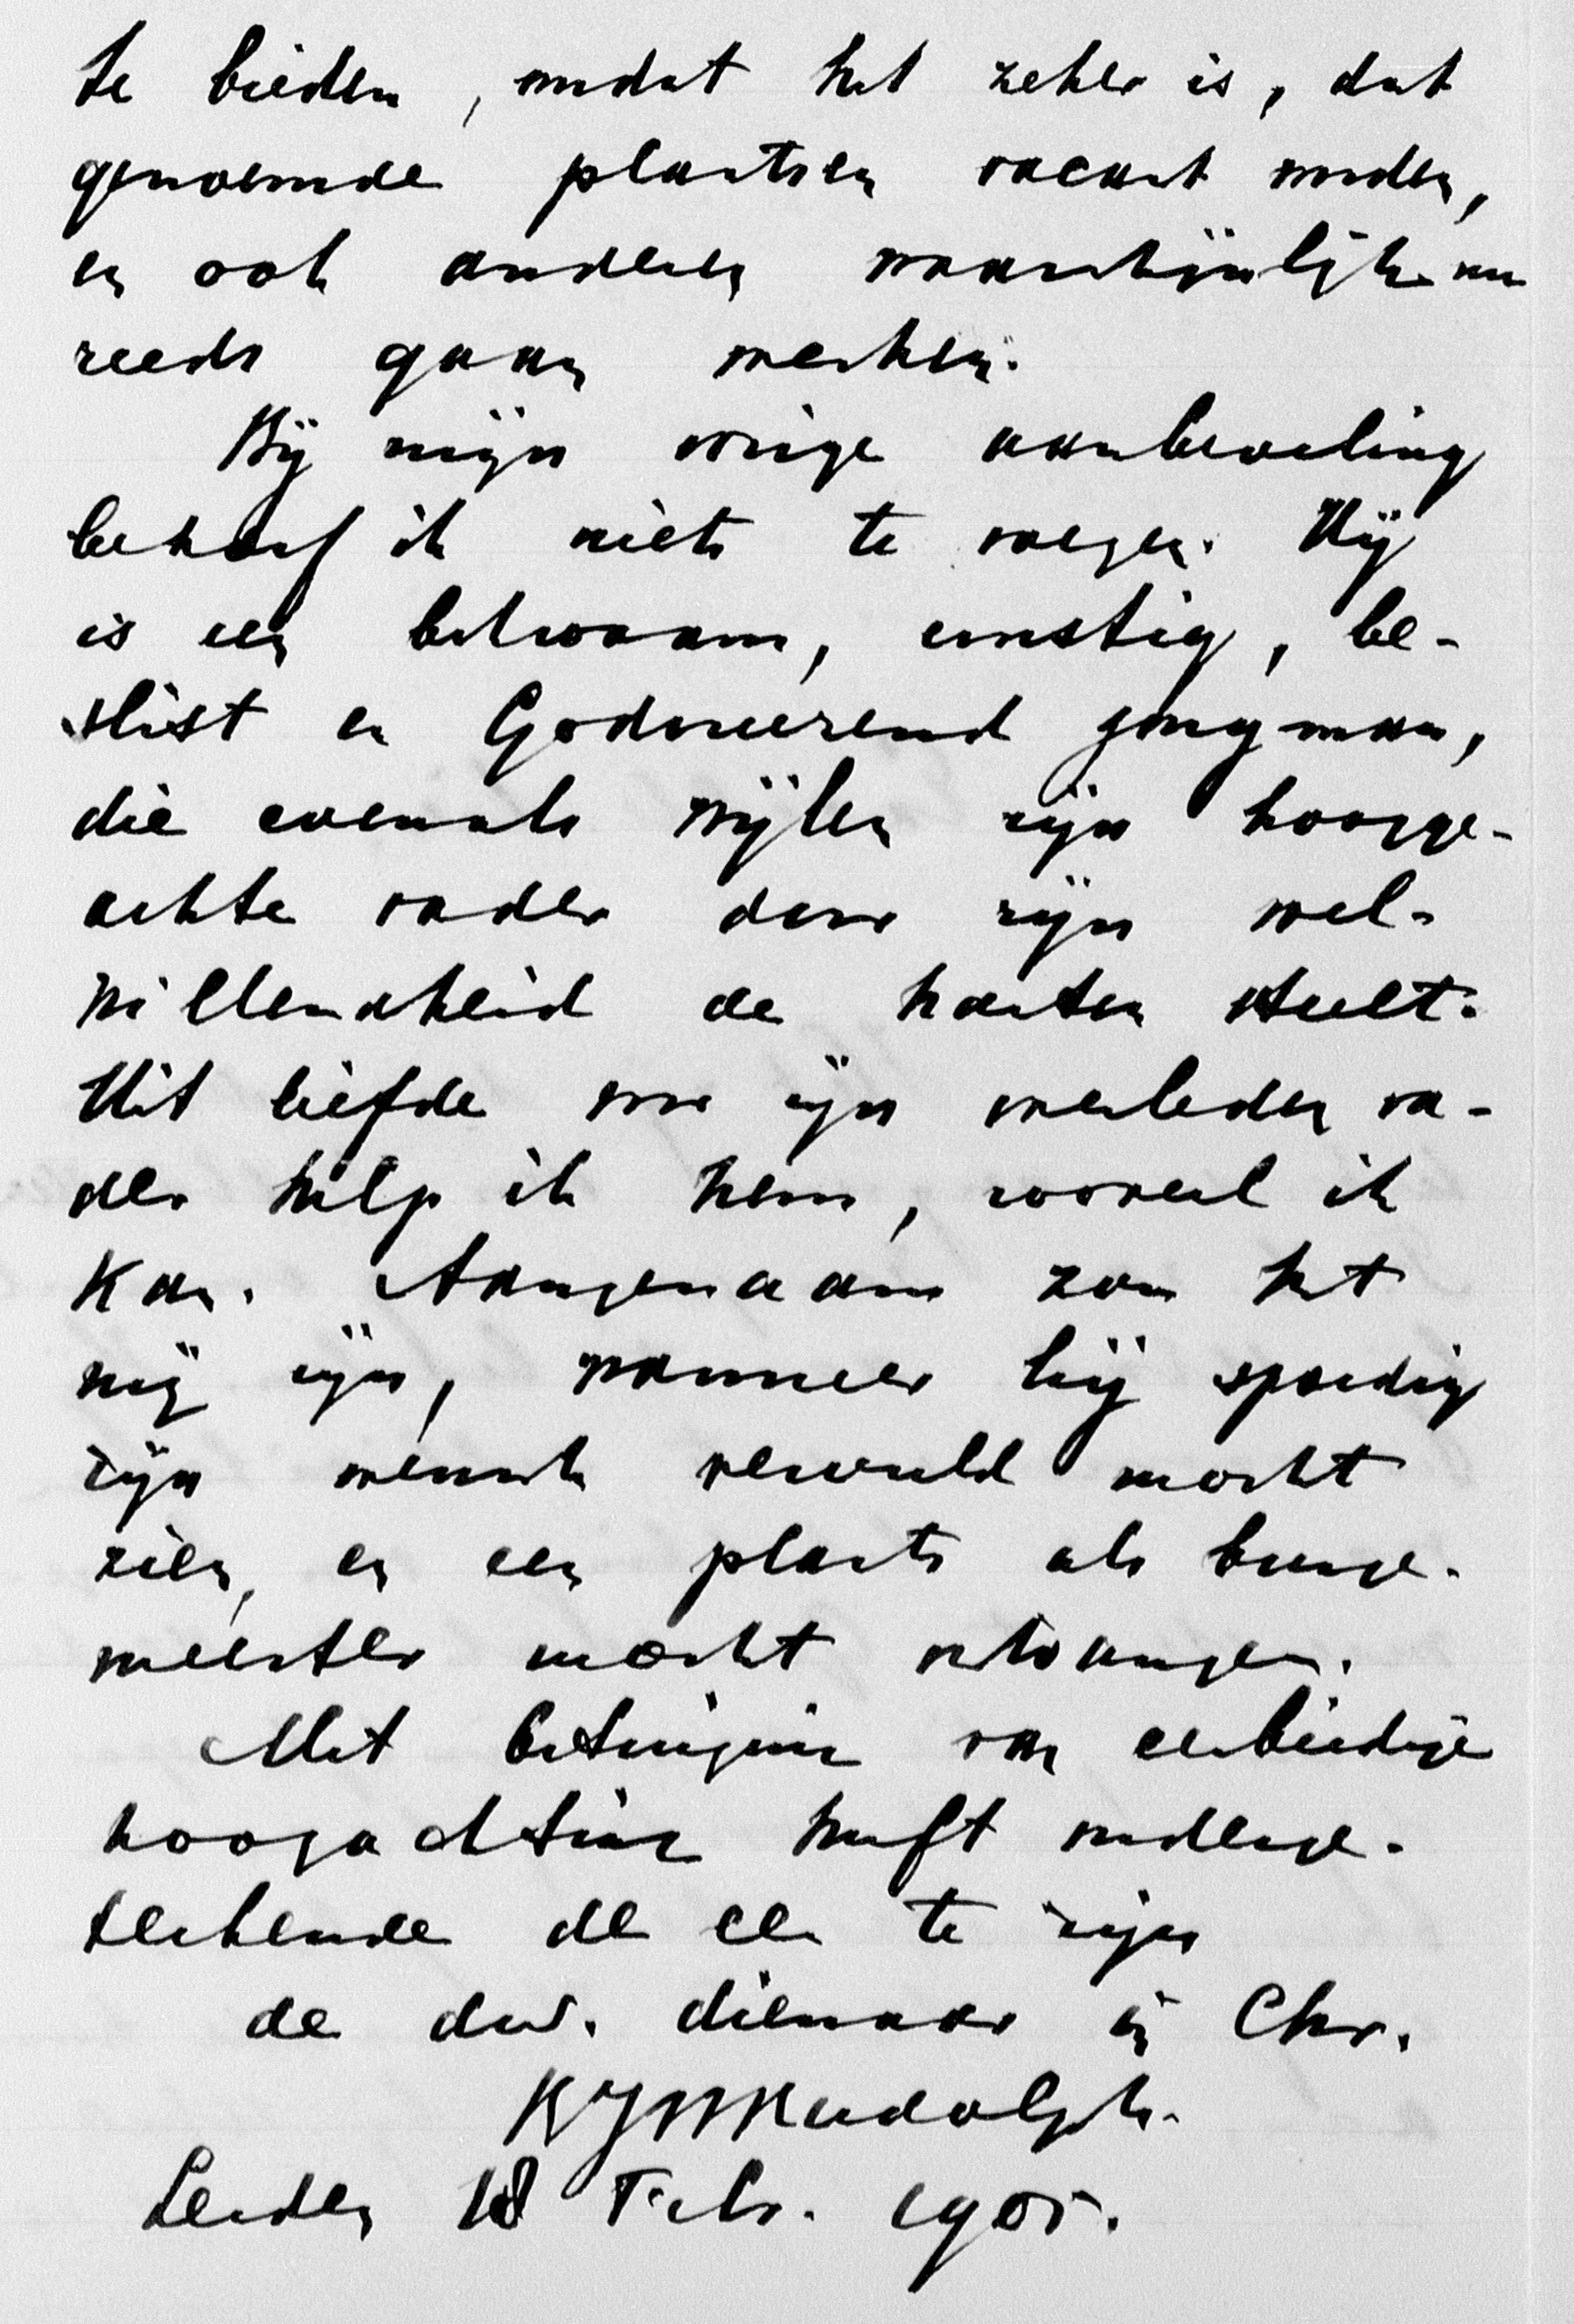 te bieden, omdat het zeker is, dat
genoemde plaatsen vacant worden,
en ook anderen waarschijnlijk nu
reeds gaan werken.
Bij mijn vorige aanbeveling
behoef ik niets te voegen. Hij
is een bekwaam, ernstig, be-
slist en Godvreezend jongman,
die evenals wijlen zijn hoogge-
achte vader door zijn wel-
willendheid de harten steelt.
Uit liefde voor zijn overleden va-
der help ik hem, zooveel ik
kan. Aangenaam zou het
mij zijn, wanneer hij spoedig
zijn wensch vervuld mocht
zien, en een plaats als burge-
meester mocht ontvangen.
Met betuiging van eerbiedige
hoogachting heeft onderge-
teekende de eer te zijn
de dw. dienaar in Chr.
R J W Rudolph.
Leiden 18 Febr. 1905.